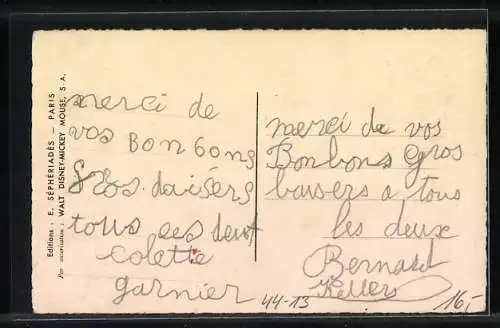 Editions : E. SÉPHÉRIADÈS — PARIS
Par autorisation : WALT DISNEY-MICKEY MOUSE, S. A.
merci de
vos BonBons
gros. baisers
tous les deux
colette
garnier
merci de vos
Bonbons gros
baisers a tous
les deux
Bernard
44-13
16,-